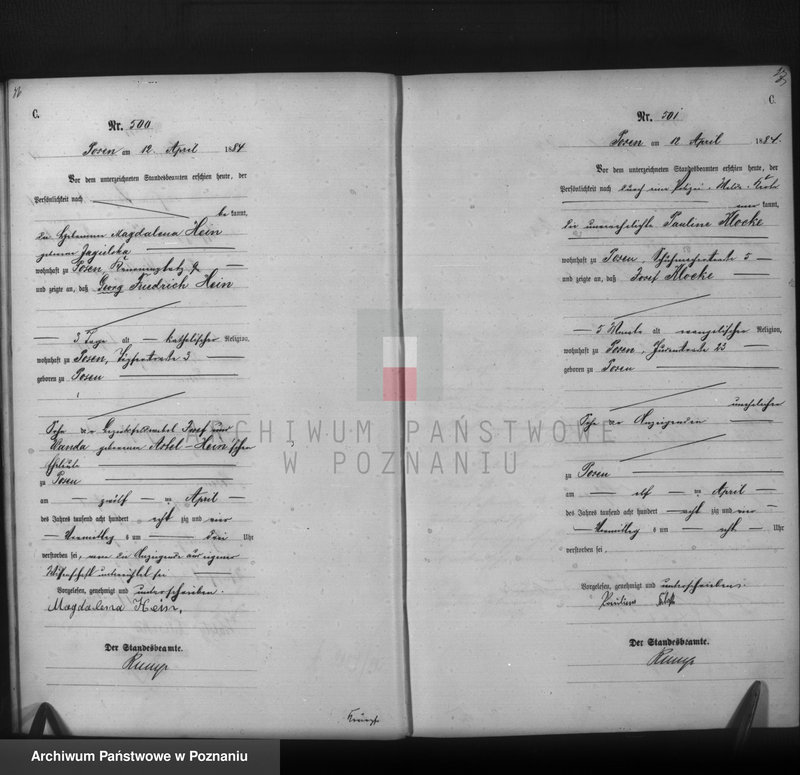 C.
Nr. 500
Posen am 12. April 1884
Vor dem unterzeichneten Standesbeamten erschien heute, der
Persönlichkeit nach
be kannt,
die Hebamme Magdalena Hein
geborene Jagielska
wohnhaft zu Posen,
und zeigte an, daß Georg Friedrich Hein
3 Tage alt katholischer Religion,
wohnhaft zu Posen, 3
geboren zu Posen
Sohn des Bezirksfeldwebel Josef und
Wanda geborenen Hein'schen
Eheleute
zu Posen
am zwölf ten April
des Jahres tausend acht hundert acht zig und vier
Vormittags um drei Uhr
verstorben sei, wovon die Anzeigende aus eigener
Wissenschaft unterrichtet sei
Vorgelesen, genehmigt und unterschrieben.
Magdalena Hein.
Der Standesbeamte.
C.
Nr. 501
Posen am 12 April 1884.
Vor dem unterzeichneten Standesbeamten erschien heute, der
Persönlichkeit nach durch eine Polizei-Melde-Karte
aner kannt,
die unverehelichte Pauline Klocke
wohnhaft zu Posen, Schuhmacherstraße 5
und zeigte an, daß Josef Klocke
5 Monate alt evangelischer Religion,
wohnhaft zu Posen, Judenstraße 23
geboren zu Posen
unehelicher
Sohn der Anzeigenden
zu Posen
am elf ten April
des Jahres tausend acht hundert acht zig und vier
Vormittags um acht Uhr
verstorben sei.
Vorgelesen, genehmigt und unterschrieben.
Pauline
Der Standesbeamte.
ARCHIWUM PAŃSTWOWE
W POZNANIU
Archiwum Państwowe w Poznaniu